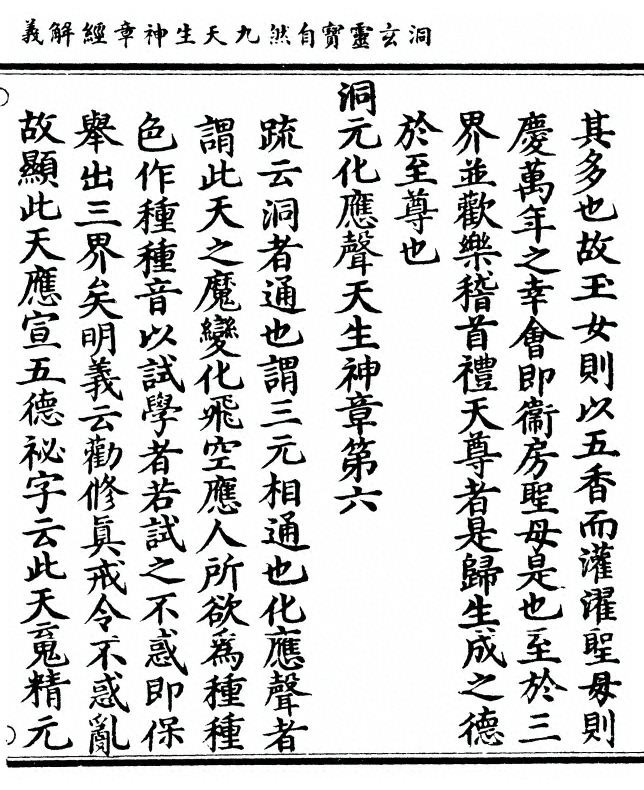 洞玄靈寳自然九天生神章經解義
其多也故玉女則以五香而灌濯聖母則
慶萬年之幸會即衞房聖母是也至於三
界並歡樂稽首禮天尊者是歸生成之德
於至尊也
洞元化應聲天生神章第六
疏云洞者通也謂三元相通也化應聲者
謂此天之魔變化飛空應人所欲爲種種
色作種種音以試學者若試之不惑即保
舉出三界矣明義云勸修眞戒令不惑亂
故顯此天應宣五德祕字云此天䰟精元